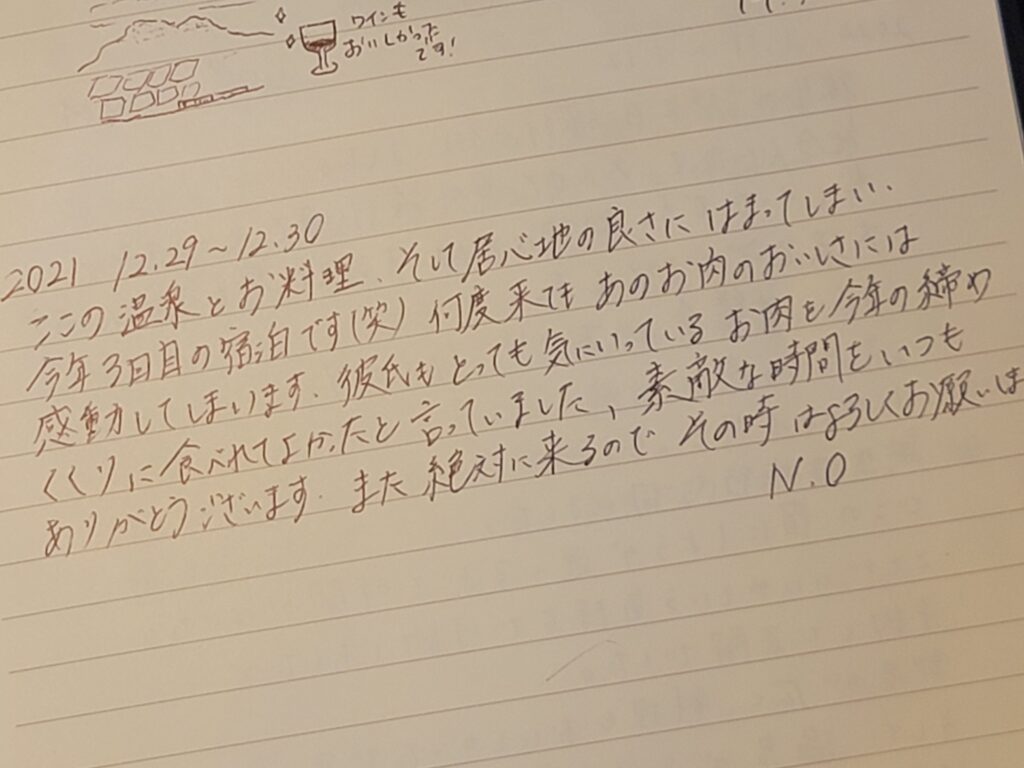 ワインも
おいしかった
です!
2021 12.29~12.30
ここの温泉とお料理、そして居心地の良さにはまってしまい、
今年3日目の宿泊です(笑) 何度来てもあのお肉のおいしさには
感動してしまいます。彼氏もとっても気にいっているお肉を今年の締め
くくりに食べれてよかったと言っていました、素敵な時間をいつも
ありがとうございます。また絶対に来るのでその時はよろしくお願いしま
N.O